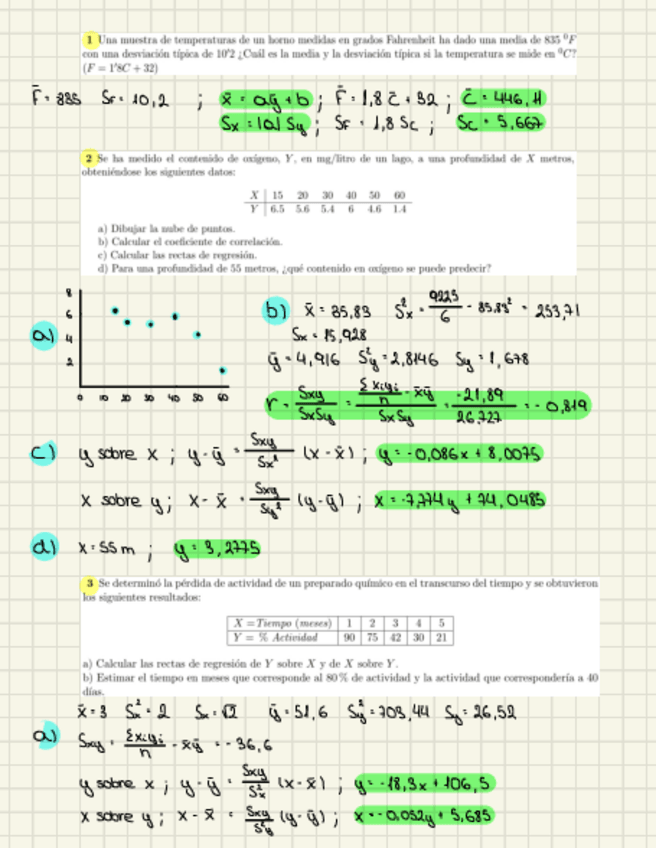 1 Una muestra de temperaturas de un horno medidas en grados Fahrenheit ha dado una media de 835 ⁰F
con una desviación típica de 10'2 ¿Cuál es la media y la desviación típica si la temperatura se mide en ⁰C?
(F = 1'8C + 32)
F̄ = 835 S_F = 10,2 ; x̄ = aȳ + b ; F̄ = 1,8 C̄ + 32 ; C̄ = 446,11
Sx = |a| Sy ; S_F = 1,8 Sc ; Sc = 5,667
2 Se ha medido el contenido de oxígeno, Y, en mg/litro de un lago, a una profundidad de X metros,
obteniéndose los siguientes datos:
X 15 20 30 40 50 60
Y 6.5 5.6 5.4 6 4.6 1.4
a) Dibujar la nube de puntos.
b) Calcular el coeficiente de correlación.
c) Calcular las rectas de regresión.
d) Para una profundidad de 55 metros, ¿qué contenido en oxígeno se puede predecir?
a)
8
6
4
2
0 10 20 30 40 50 60
b) x̄ = 35,83 S²x = 9225/6 - 35,83² = 253,71
Sx = 15,928
ȳ = 4,916 S²y = 2,8146 Sy = 1,678
r = Sxy/SxSy = (Σxiyi/n - x̄ȳ)/SxSy = -21,89/26,727 = -0,819
c) y sobre x ; y - ȳ = Sxy/Sx² (x - x̄) ; y = -0,086x + 8,0075
x sobre y ; x - x̄ = Sxy/Sy² (y - ȳ) ; x = -7,774y + 74,0485
d) x = 55 m ; y = 3,2775
3 Se determinó la pérdida de actividad de un preparado químico en el transcurso del tiempo y se obtuvieron
los siguientes resultados:
X = Tiempo (meses) 1 2 3 4 5
Y = % Actividad 90 75 42 30 21
a) Calcular las rectas de regresión de Y sobre X y de X sobre Y.
b) Estimar el tiempo en meses que corresponde al 80% de actividad y la actividad que correspondería a 40
días.
x̄ = 3 S²x = 2 Sx = √2 ȳ = 51,6 S²y = 703,44 Sy = 26,52
a) Sxy = Σxiyi/n - x̄ȳ = -36,6
y sobre x ; y - ȳ = Sxy/S²x (x - x̄) ; y = -18,3x + 106,5
x sobre y ; x - x̄ = Sxy/S²y (y - ȳ) ; x = -0,052y + 5,685